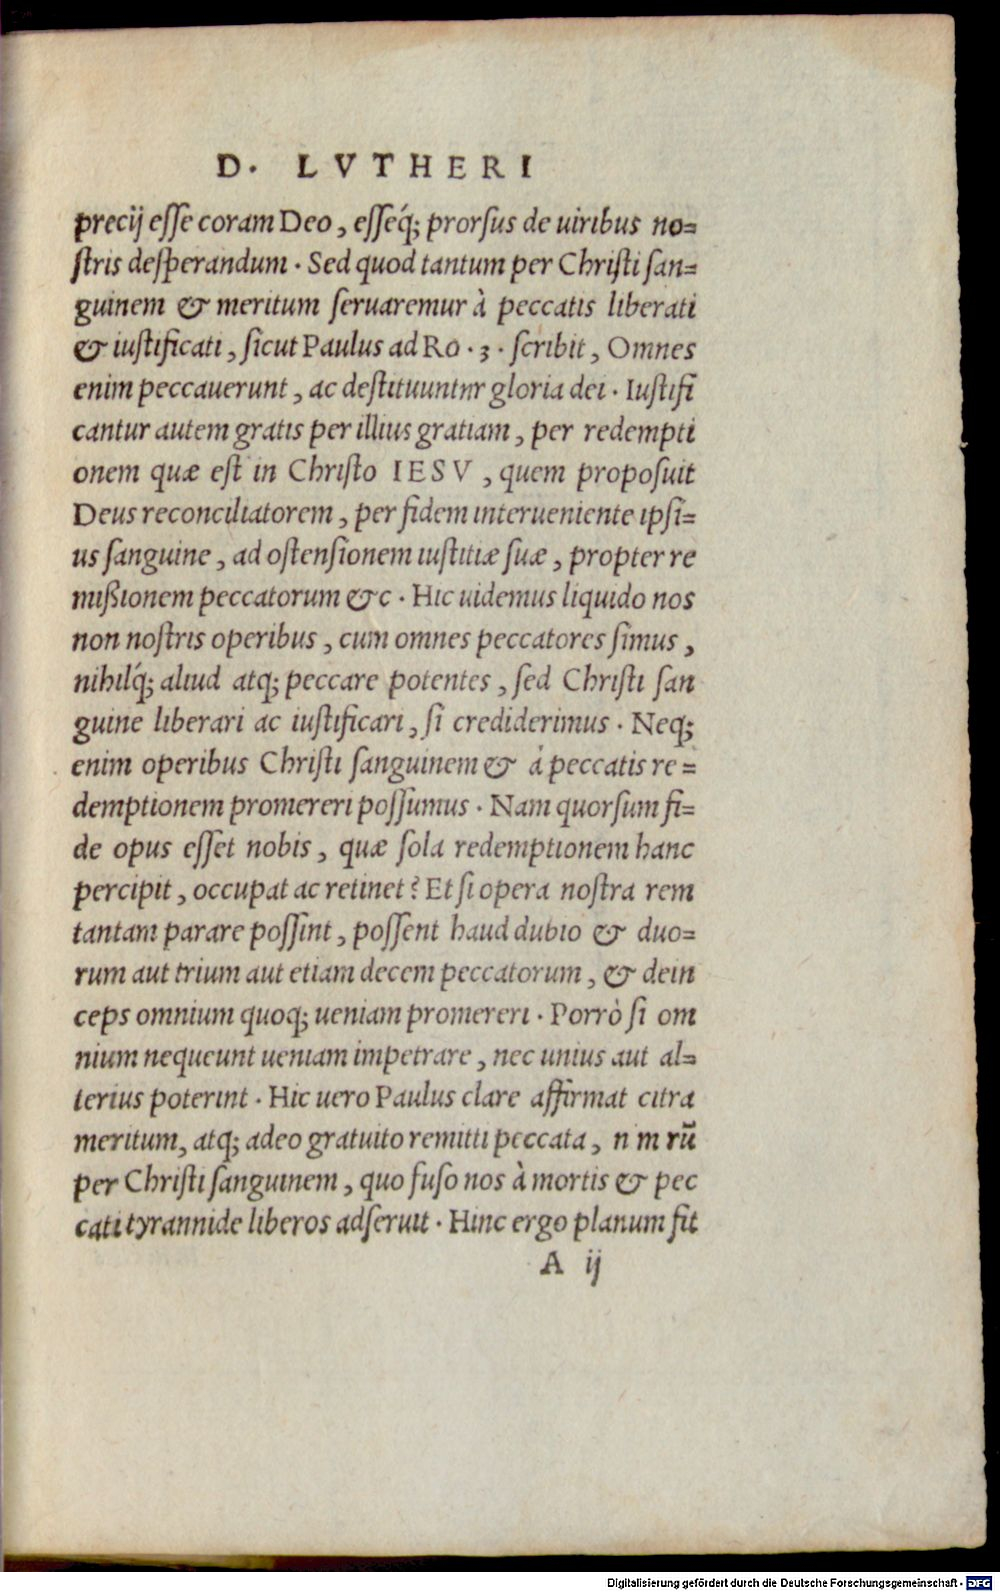 D. LVTHERI
precij eſſe coram Deo, eſſeq́; prorſus de uiribus no=
ſtris deſperandum. Sed quod tantum per Chriſti ſan=
guinem & meritum ſeruaremur à peccatis liberati
& iuſtificati, ſicut Paulus ad Ro. 3. ſcribit, Omnes
enim peccauerunt, ac deſtituuntnr gloria dei. Iuſtifi
cantur autem gratis per illius gratiam, per redempti
onem quæ eſt in Chriſto IESV, quem propoſuit
Deus reconciliatorem, per fidem interueniente ipſi=
us ſanguine, ad oſtenſionem iuſtitiæ ſuæ, propter re
mißionem peccatorum &c. Hic uidemus liquido nos
non noſtris operibus, cum omnes peccatores ſimus,
nihilq́; aliud atq; peccare potentes, ſed Chriſti ſan
guine liberari ac iuſtificari, ſi crediderimus. Neq;
enim operibus Chriſti ſanguinem & à peccatis re=
demptionem promereri poſſumus. Nam quorſum fi=
de opus eſſet nobis, quæ ſola redemptionem hanc
percipit, occupat ac retinet? Et ſi opera noſtra rem
tantam parare poſſint, poſſent haud dubio & duo=
rum aut trium aut etiam decem peccatorum, & dein
ceps omnium quoq; ueniam promereri. Porrò ſi om
nium nequeunt ueniam impetrare, nec unius aut al=
terius poterint. Hic uero Paulus clare affirmat citra
meritum, atq; adeo gratuito remitti peccata, n m rũ
per Chriſti ſanguinem, quo fuſo nos à mortis & pec
cati tyrannide liberos adſeruit. Hinc ergo planum fit
A ij
Digitalisierung gefördert durch die Deutsche Forschungsgemeinschaft - DFG